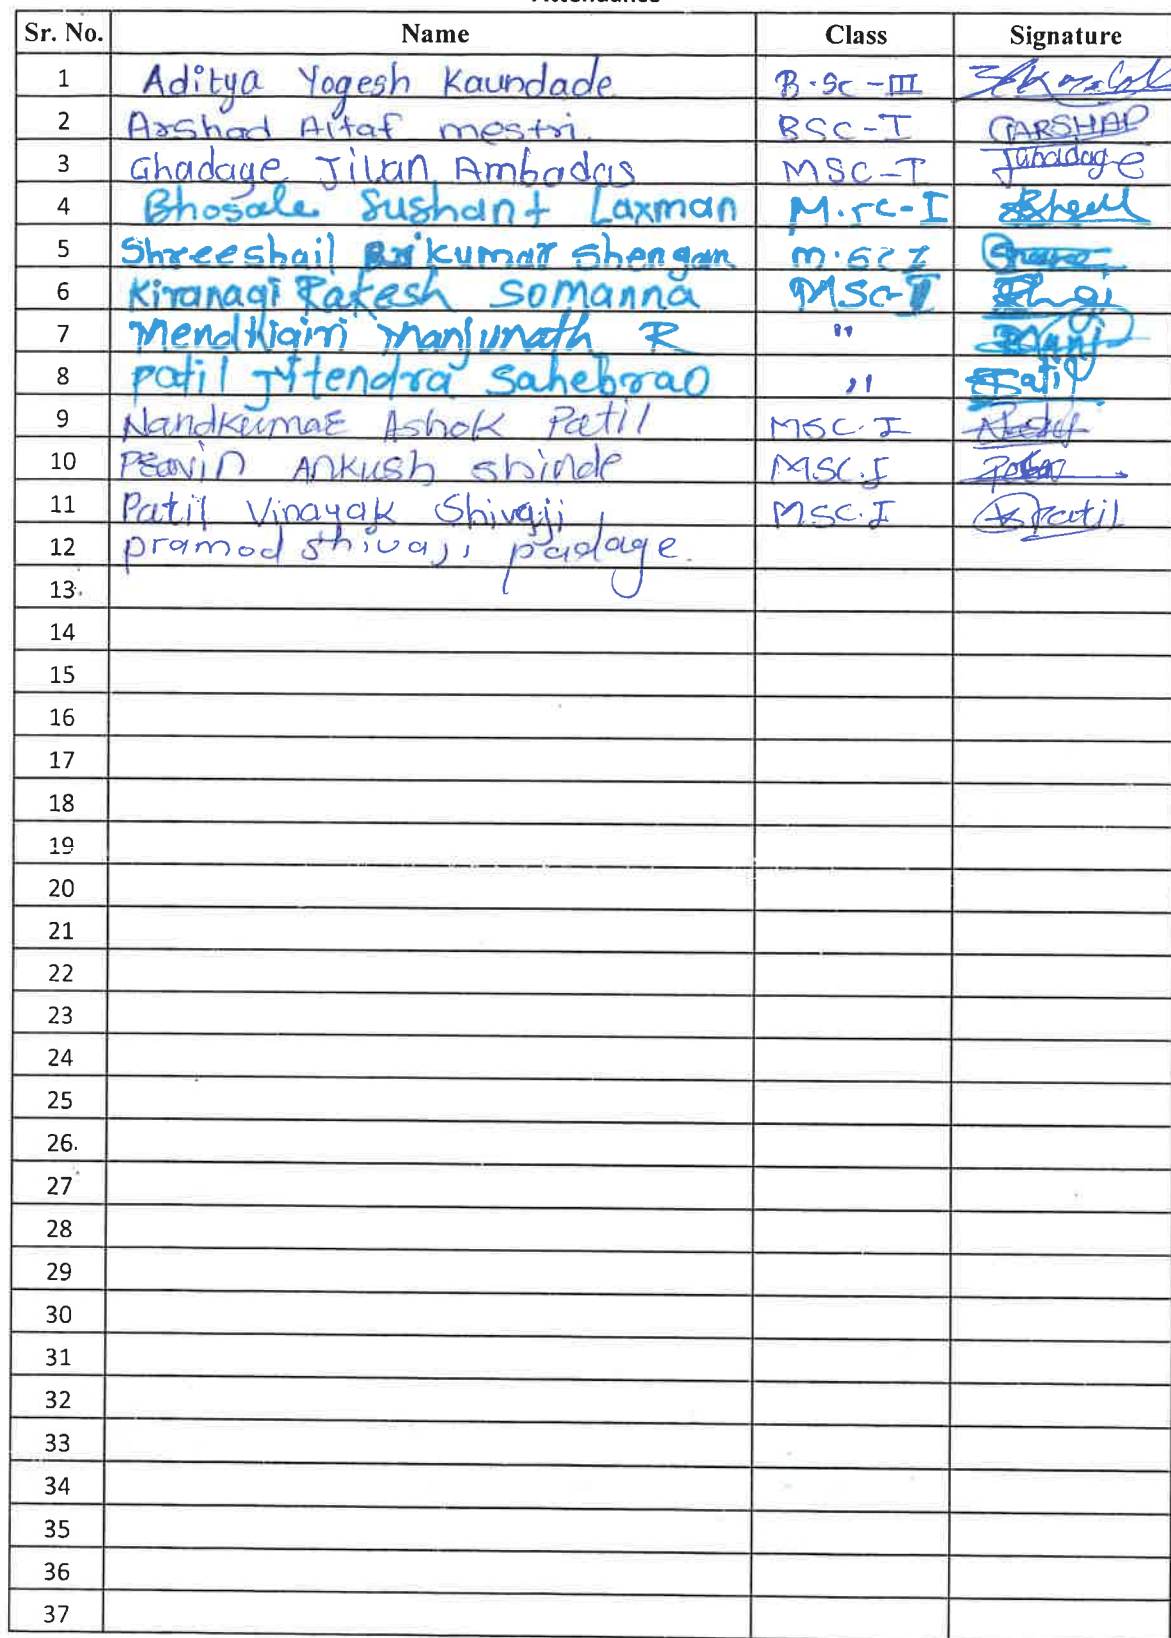 Attendance
Sr. No. Name Class Signature
1 Aditya Yogesh Kaundade B.Sc-III
2 Arshad Altaf mestri. BSC-I ARSHAD
3 Ghadage Jilan Ambadas MSC-I Jghadage
4 Bhosale Sushant Laxman M.sc-I
5 Shreeshail kumar Shengan m.sc I
6 Kiranagi Rakesh Somanna MSc-I
7 Mendhigiri Manjunath R "
8 Patil Jitendra Sahebrao " Patil
9 Nandkumar Ashok Patil MSC.I
10 Pravin Ankush shinde MSC.I
11 Patil Vinayak Shivaji MSC.I Patil
12 pramod shivaji padage.
13
14
15
16
17
18
19
20
21
22
23
24
25
26
27
28
29
30
31
32
33
34
35
36
37